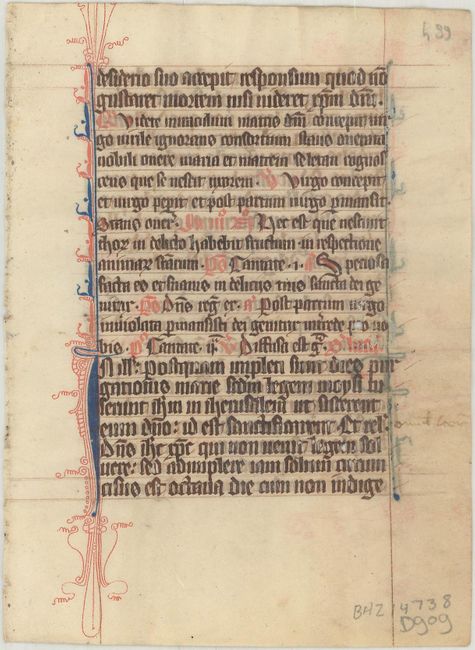 h 99
desiderio suo accepit responsum quod nō
gustaret mortem nisi uideret xpm dnm.
Videte miraculum matris dnī concepit uir
go uirile ignorans consortium stans onerata
nobili onere maria et matrem se letam cognos
cens que se nescit uxorem. V Virgo concepit
et uirgo peperit et post partum uirgo permansit.
Stans oner. Hec est que nesciuit
thorum in delicto habebit fructum in respectione
animarum sanctarum. Ps Cantate .i. a Speciosa
facta es et suauis in deliciis tuis sancta dei ge
nitrix. Ps Dns reg er. a Post partum uirgo
inuiolata permansisti dei genitrix intercede pro no
bis. Ps Cantate .ij. V Diffusa est gra.
In ill. Postquam impleti sunt dies pur
gationis marie secundum legem moysi tu
lerunt ihm in iherusalem ut sisterent
eum dno: id est sanctificarent. Et rel.
Dns ihc xpc qui non uenit legem sol
uere: sed adimplere iam solum circum
cisus est octaua die cum non indige
BHZ 4738
D909